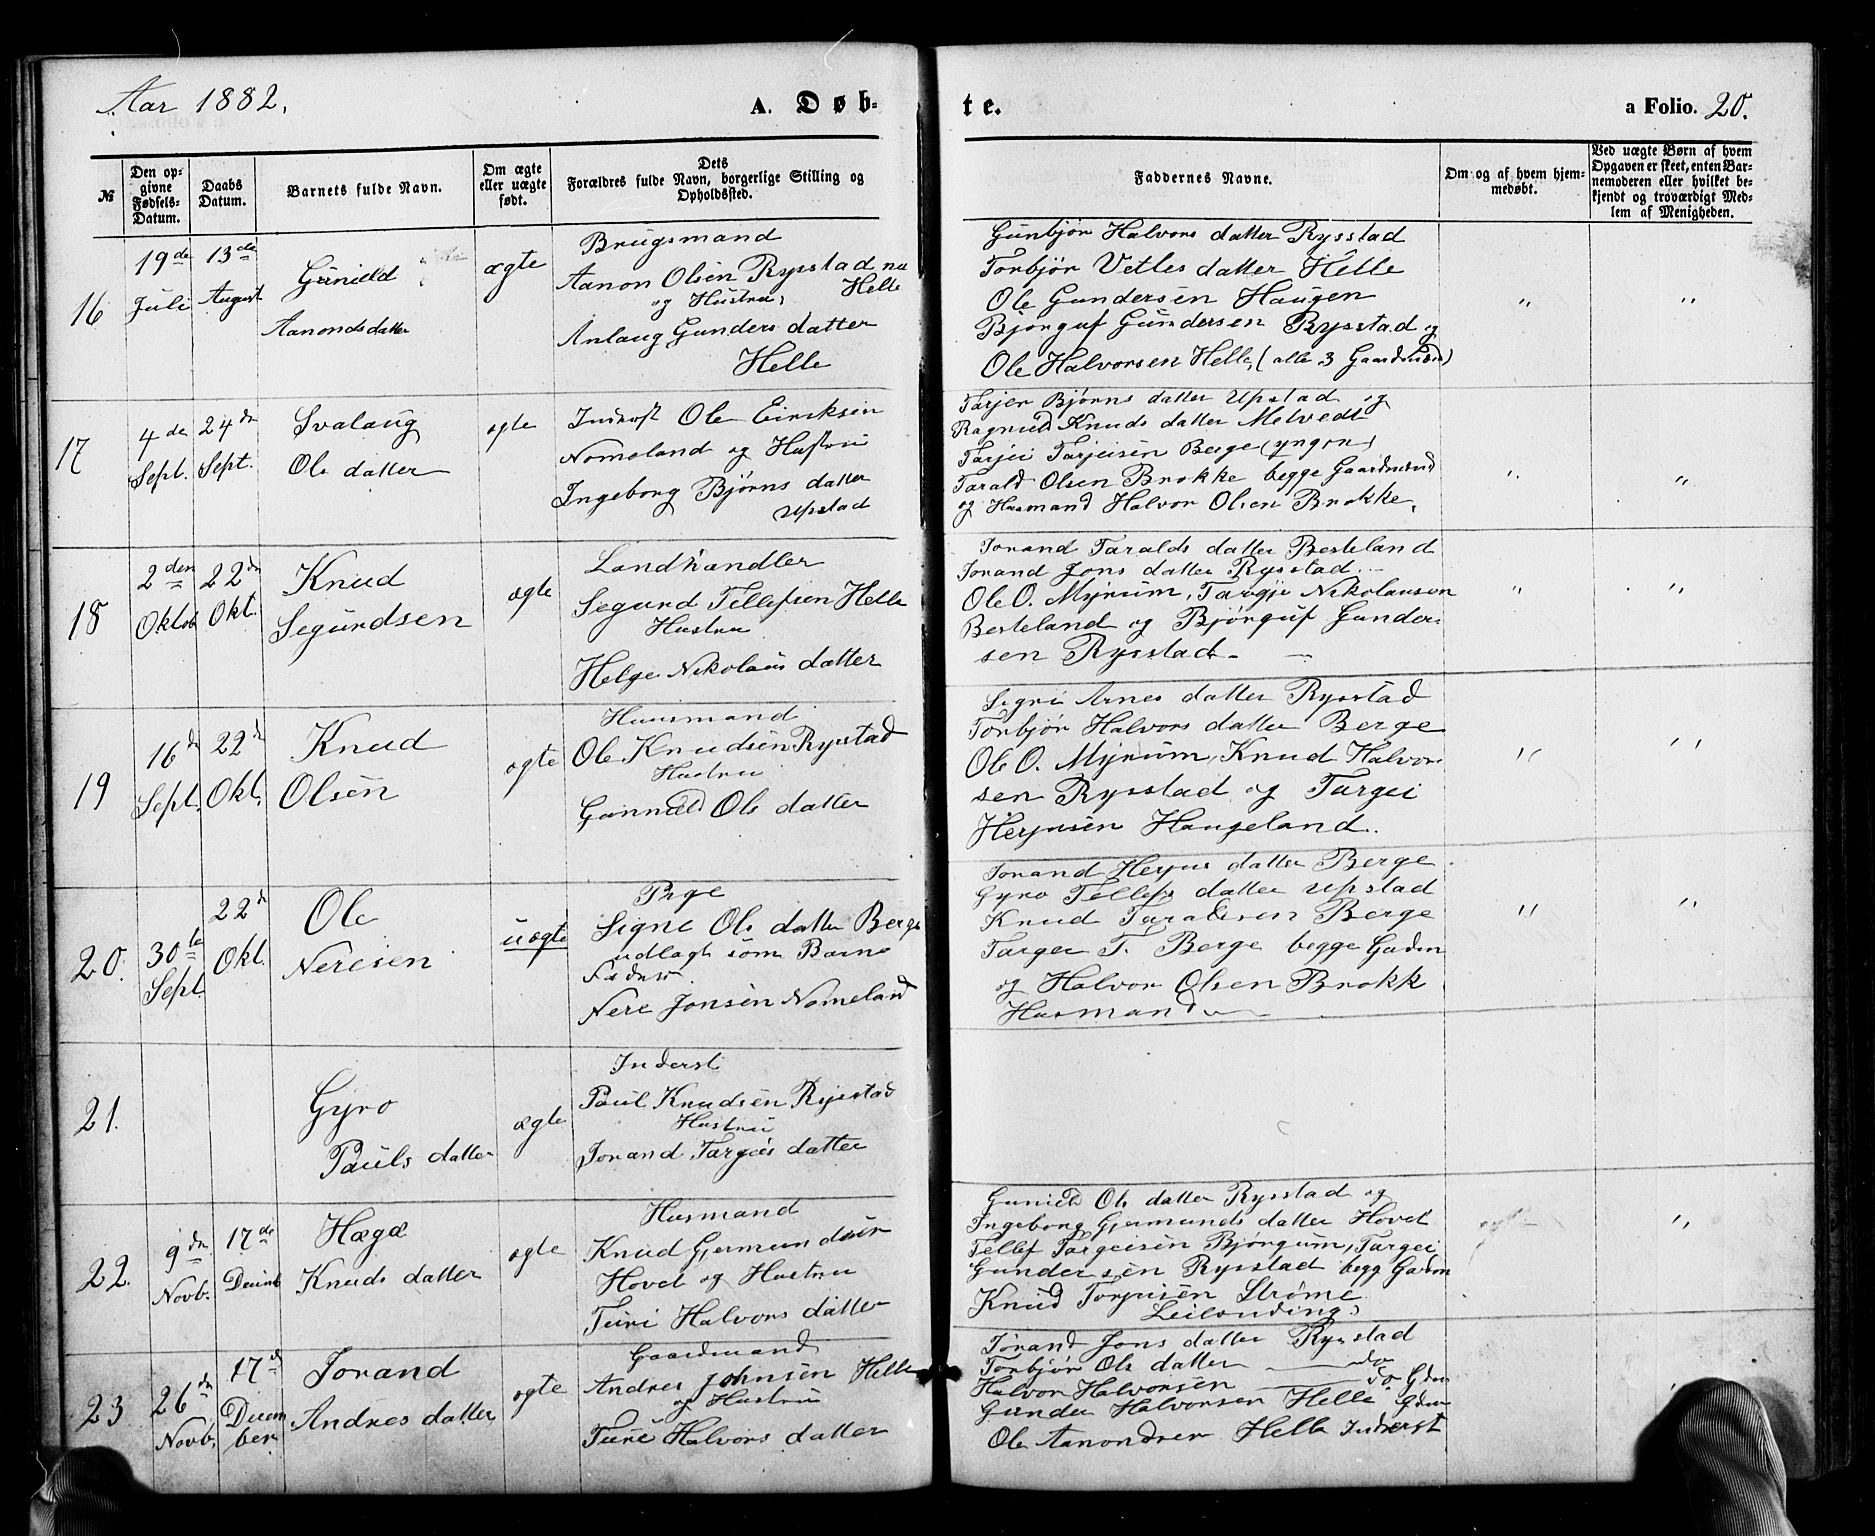 Aar 1882.
A. Døb-
te.
a Folio. 20.
№
Den op-
givne
Fødsels-
Datum.
Daabs
Datum.
Barnets fulde Navn.
Om ægte
eller uægte
født.
Dets
Forældres fulde Navn, borgerlige Stilling og
Opholdssted.
Faddernes Navne.
Om og af hvem hjem-
medøbt.
Ved uægte Børn af hvem
Opgaven er skeet, enten Bar-
nemoderen eller hvilket be-
kjendt og troværdigt Med-
lem af Menigheden.
16
19de
Juli
13de
August
Gunild
Aanondsdatter
ægte
Brugsmand
Aanon Olsen Rysstad nu
og Hustru, Helle
Anlaug Gunders datter
Helle
Gunbjør Halvors datter Rysstad
Torbjør Vetles datter Helle
Ole Gundersen Haugen
Bjørguf Gundersen Rysstad og
Ole Halvorsen Helle, (alle 3 Gaardmænd)
"
"
17
4de
Sept.
24de
Sept.
Svalaug
Ols datter
ægte
Inderst Ole Eiriksen
Nomeland og Hustru
Ingeborg Bjørns datter
Upstad
Tarjer Bjørns datter Upstad og
Ragnild Knuds datter Melvedt
Tarjei Tarjeisen Berge (yngre)
Tarald Olsen Brokke begge Gaardmænd
og Husmand Halvor Olsen Brokke.
"
"
18
2den
Oktob
22de
Okt.
Knud
Segurdsen
ægte
Landhandler
Segurd Tellefsen Helle
Hustru
Helge Nikolaus datter
Jorand Taralds datter Besteland
Jorand Jons datter Rysstad
Ole O. Myrum, Targje Nikolausen
Besteland og Bjørguf Gunder-
sen Rysstad
"
"
19
16d
Sept.
22d
Okt.
Knud
Olsen
ægte
Huusmand
Ole Knudsen Rysstad
Hustru
Gunnild Ols datter
Sigri Arnes datter Rysstad
Torbjør Halvors datter Berge
Ole O. Myrum, Knud Halvor-
sen Rysstad og Targei
Herjusen Haugeland.
"
"
20.
30te
Sept.
22d
Okt.
Ole
Neresen
uægte
Pige
Signe Ols datter Berge
udlagt som Barne
Fader
Nere Jonsen Nomeland
Jorand Herjus datter Berge
Gyro Tellefs datter Upstad
Knud Taraldsen Berge
Targei T. Berge begge Gadm
og Halvor Olsen Brokk
Husmand
"
"
21.
Gyro
Pauls datter
ægte
Inderst
Paul Knudsen Rysstad
Hustru
Jorand Targeis datter
22.
9de
Novb.
17de
Decemb
Hæge
Knuds datter
ægte
Husmand
Knud Gjermundsen
Hovet og Hustru
Turi Halvors datter
Gunild Ols datter Rysstad og
Ingeborg Gjermunds datter Hovet
Tellef Targeisen Bjørgum, Targei
Gundersen Rysstad begg Gadm
Knud Torjusen Strøme
Leilænding
"
23
26de
Novb.
17d
Decem
ber
Jorand
Andres datter
ægte
Gaardmand
Andres Johnsen Helle
og Hustru
Turi Halvors datter
Jorand Jons datter Rysstad
Torbjør Ols datter do
Halvor Halvorsen do Gdm
Gunder Halvorsen Helle Gdm
Ole Aanondsen Helle Inderst